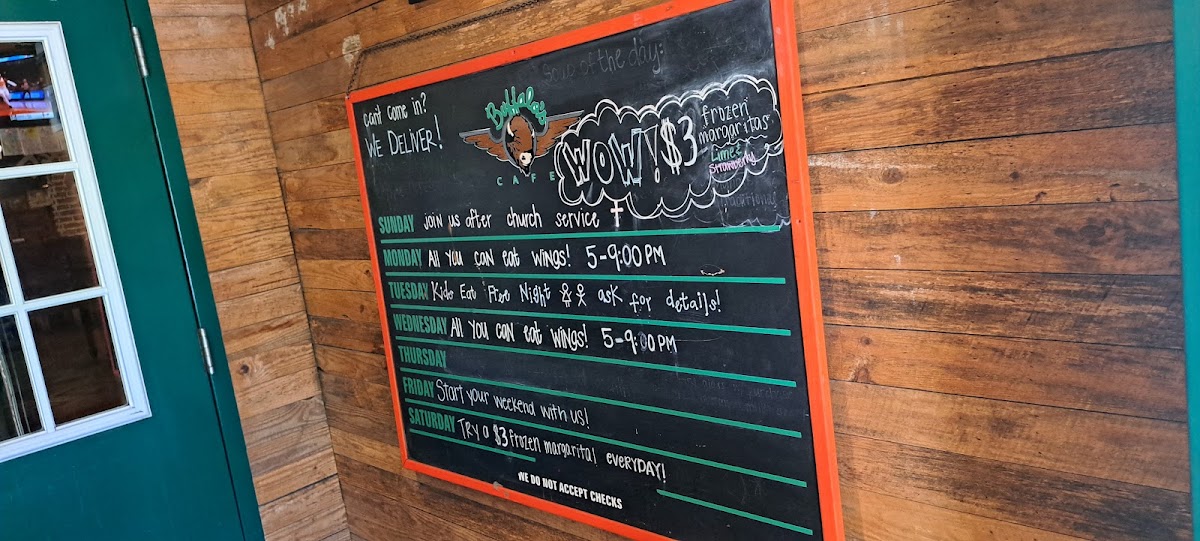 Soup of the day:
can't come in?
WE DELIVER!
Buffalo's
CAFE
WOW! $3
frozen
margaritas
Lime &
Strawberry
SUNDAY join us after church service
MONDAY All you can eat wings! 5-9:00 PM
TUESDAY Kids Eat Free Night ask for details!
WEDNESDAY All you can eat wings! 5-9:00 PM
THURSDAY
FRIDAY Start your weekend with us!
SATURDAY Try a $3 frozen margarita! everyDAY!
WE DO NOT ACCEPT CHECKS